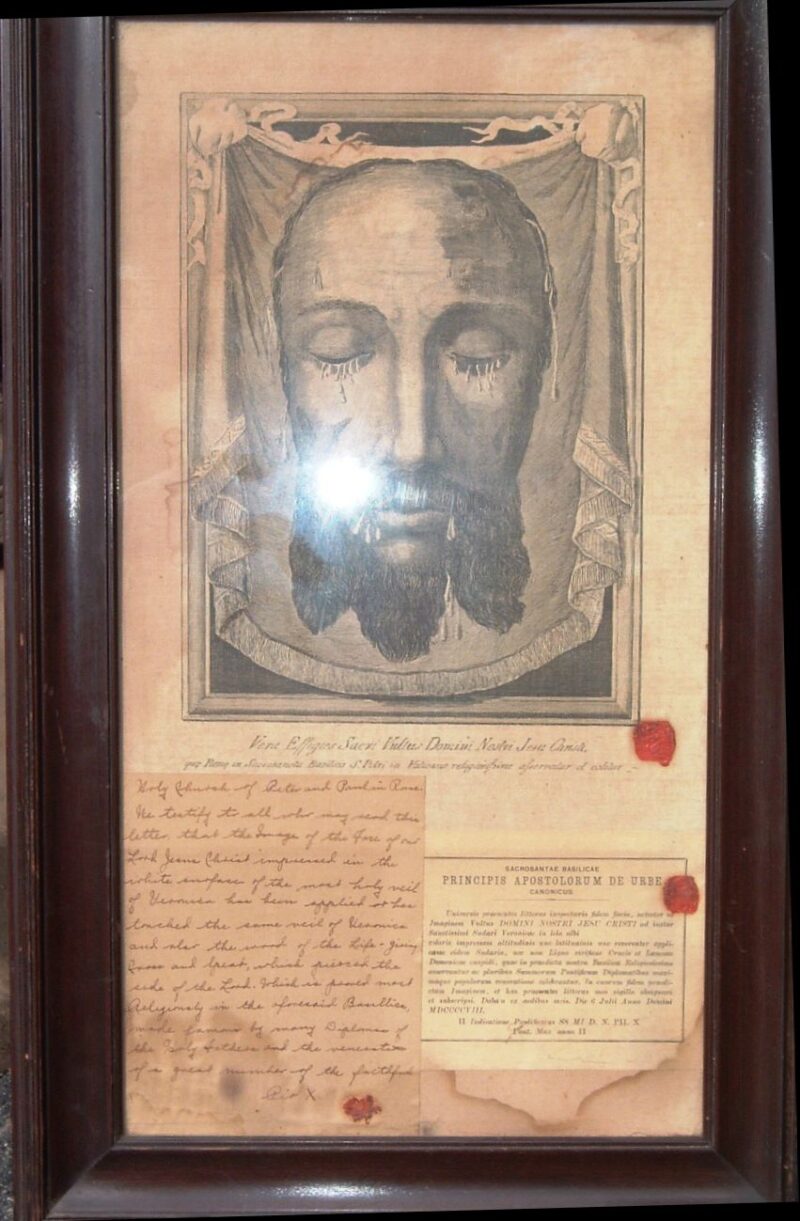 Vera Effigies Sacri Vultus Domini Nostri Jesu Christi,
quæ Romæ in Sacrosancta Basilica S. Petri in Vaticano religiosissime asservatur et colitur
Holy Church of Peter and Paul in Rome.
We testify to all who may send this
letter, that the Image of the Face of our
Lord Jesus Christ impressed in the
white surface of the most holy veil
of Veronica has been applied or has
touched the same veil of Veronica
and also the wood of the Life-giving
Cross and Spear, which pierced the
side of the Lord. Which is most
Religiously in the aforesaid Basilica,
made famous by many Diplomas of
the Holy Fathers and the veneration
of a great number of the faithful
Pio X
SACROSANTAE BASILICAE
PRINCIPIS APOSTOLORUM DE URBE
CANONICUS
Universis praesentes litteras inspecturis fidem facio,
Imaginem Vultus DOMINI NOSTRI JESU CRISTI ad instar
Sanctissimi Sudari Veronicae in albi
coloris impressam altitudinis latitudinis
eidem Sudario, nec non Ligno Crucis et Lanceae
Dominicae cuspidi, quae in praedicta nostra Basilica
ac pluribus Summorum Pontificum Diplomatibus
populorum veneratione celebrantur. In quorum fidem
Imaginem, et has praesentes litteras meo sigillo
et subscripsi. Datum ex aedibus meis. Die 6 Julii Anno Domini
MDCCCCVIII.
II Indictione, Pontificatus SS MI D. N. PII. X
Pont. Max anno II